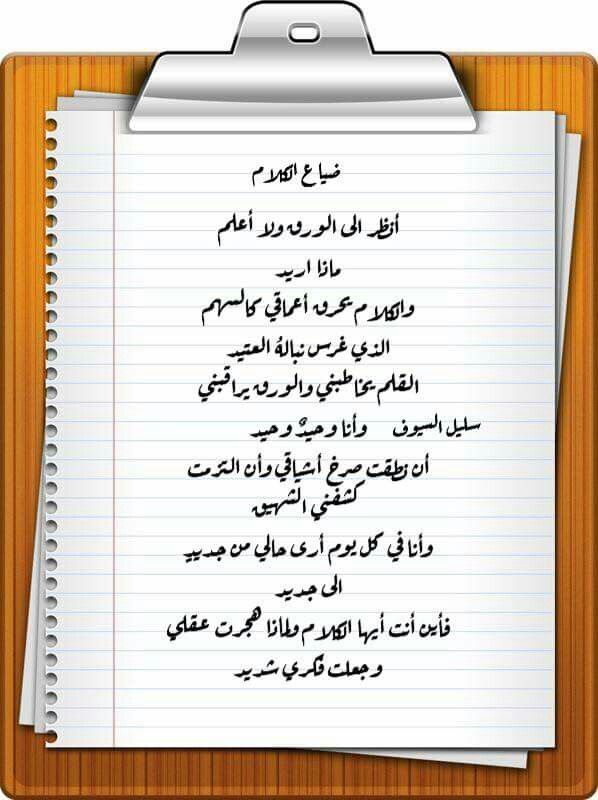 ضياع الكلام
أنظر الى الورق ولا أعلم
ماذا اريد
والكلام يحرق أعماقي كالسهم
الذي غرس نبالهُ العتيد
القلم يخاطبني والورق يراقبني
سليل السيوف وأنا وحيدٌ وحيد
أن نطقت صرخ أشياقي وأن التزمت
كشفني الشهيق
وأنا في كل يوم أرى حالي من جديدٍ
الى جديد
فأين أنت أيها الكلام ولماذا هجرت عقلي
وجعلت فكري شديد